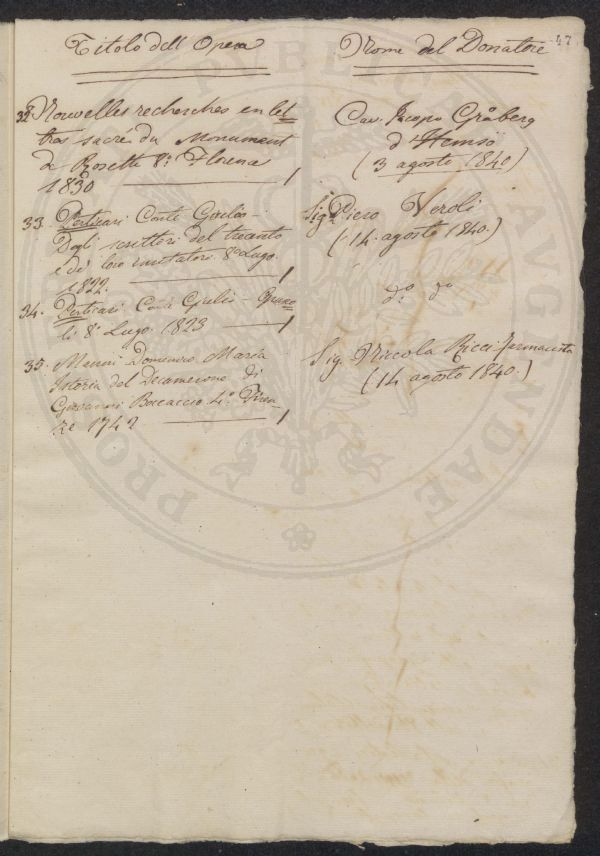 Titolo dell Opera
Nome del Donatore
47
32 Nouvelles recherches en let=
tres sacrés du Monument
de Rosette 8.º Florence
1830 1
Cav. Jacopo Gråberg
d'Hemsö
(3 agosto 1840)
33. Perticari Conte Giulio -
Degli scrittori del trecento
e de' loro imitatori 8º Lugo.
1822. 1
Sig. Piero Veroli
(14. agosto 1840.)
34. Perticari Conte Giulio - Opere
8º Lugo 1823 1
dº. dº
35. Manni Domenico Maria
Istoria del Decamerone di
Giovanni Boccaccio 4.º Firen-
ze 1742 1
Sig. Niccola Ricci farmacista
(14 agosto 1840.)
PUBLICAE
PRO